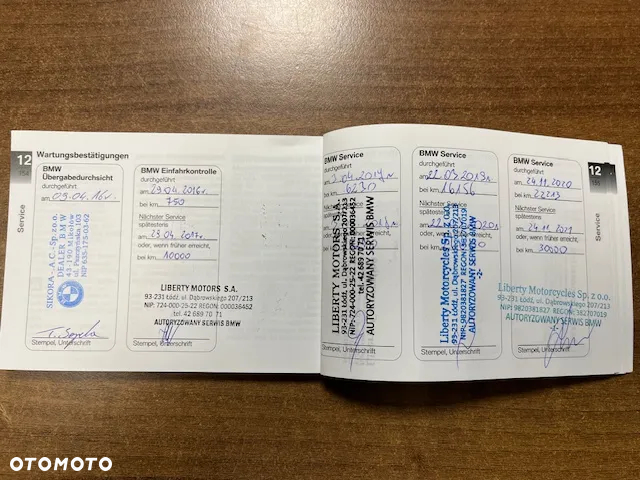 12
Service
Wartungsbestätigungen
BMW
Übergabedurchsicht
durchgeführt
am 09.04.16r.
SIKORA - A.C. Sp. z o.o.
DEALER BMW
43-190 Mikołów
NIP 635-175-03-62
Stempel, Unterschrift
BMW Einfahrkontrolle
durchgeführt
am 29.04.2016r.
bei km 750
Nächster Service
spätestens
am 29.04.2017r.
oder, wenn früher erreicht,
bei km 10000
LIBERTY MOTORS S.A.
93-231 Łódź, ul. Dąbrowskiego 207/213
NIP: 724-000-25-22 REGON: 000036452
tel. 42 689 70 71
AUTORYZOWANY SERWIS BMW
Stempel, Unterschrift
BMW Service
durchgeführt
bei km 6230
Nächster Service
LIBERTY MOTORS S.A.
93-231 Łódź, ul. Dąbrowskiego 207/213
NIP: 724-000-25-22 REGON: 000036452
tel. 42 689 70 71
AUTORYZOWANY SERWIS BMW
Stempel, Unterschrift
BMW Service
durchgeführt
am 22.03.2019r.
bei km 16156
Nächster Service
spätestens
oder, wenn früher erreicht,
bei km
Liberty Motorcycles Sp. z o.o.
93-231 Łódź, ul. Dąbrowskiego 207/213
NIP: 9820381827 REGON: 382707019
AUTORYZOWANY SERWIS BMW
-2-
Stempel, Unterschrift
BMW Service
durchgeführt
am 24.11.2020
bei km 22213
Nächster Service
spätestens
am 24.11.2021
oder, wenn früher erreicht,
bei km 30000
Liberty Motorcycles Sp. z o.o.
93-231 Łódź, ul. Dąbrowskiego 207/213
NIP: 9820381827 REGON: 382707019
AUTORYZOWANY SERWIS BMW
-1-
Stempel, Unterschrift
12
Service
OTOMOTO